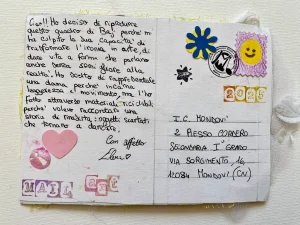 Ciao! Ho deciso di riprodurre
questo quadro di Baj perché mi
ha colpito la sua capacità di
trasformare l'ironia in arte, di
dare vita a forme che parlano
anche senza somigliare alla
realtà. Ho scelto di rappresentare
una dama perché incarna
leggerezza e movimento, ma l'ho
fatto attraverso materiali riciclati
perché volevo raccontare una
storia di rinascita: oggetti scartati
che tornano a danzare.
Con affetto
MAIL ART
2025
I.C. MONDOVÌ
2 PLESSO CORDERO
SECONDARIA I° GRADO
VIA SORGIMENTO, 14
12084 MONDOVÌ (CN)